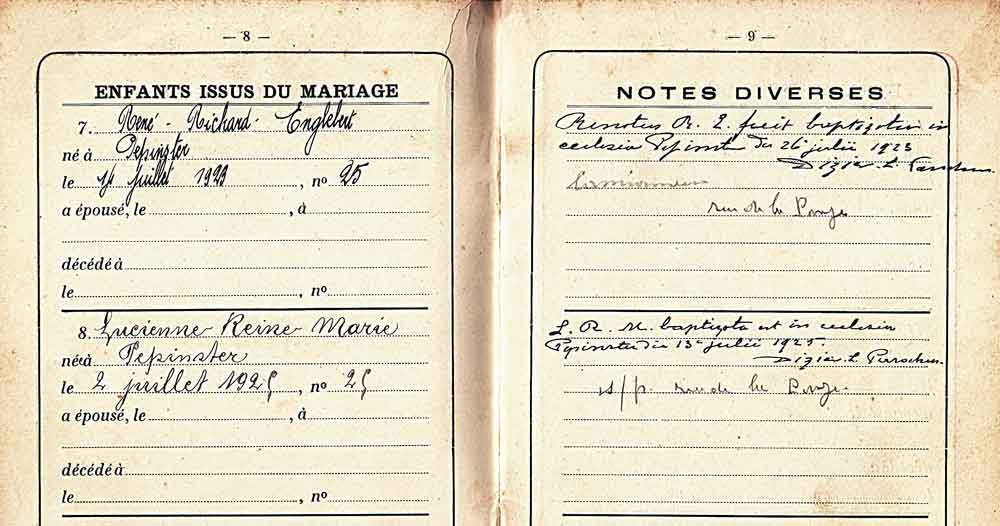 — 8 —
ENFANTS ISSUS DU MARIAGE
7. René - Richard - Englebert
né à Pepinster
le juillet 1923, nº 25
a épousé, le , à
décédé à
le , nº
8. Lucienne Reine Marie
née à Pepinster
le 2 juillet 1925, nº 25
a épousé, le , à
décédé à
le , nº
— 9 —
NOTES DIVERSES
Renatus R. E. fuit baptizatus in
ecclesia Pepinster die 26 julii 1923
L. Parochus
rue de la
L. R. M. baptizata est in ecclesia
Pepinster die 13 julii 1925.
L. Parochus.
rue de la